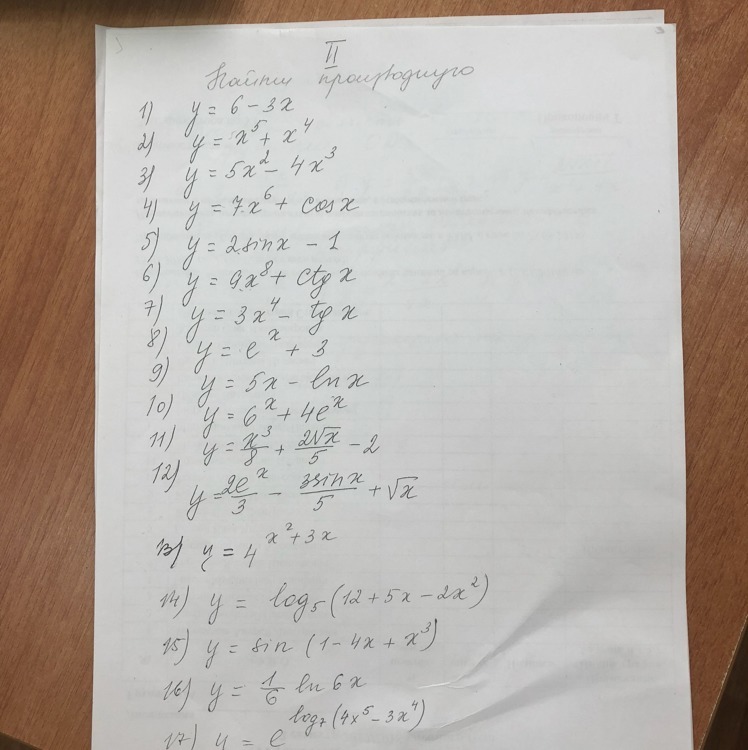 II
Найти производную
1) y = 6 - 3x
2) y = x⁵ + x⁴
3) y = 5x² - 4x³
4) y = 7x⁶ + cosx
5) y = 2sinx - 1
6) y = 9x⁸ + ctg x
7) y = 3x⁴ - tg x
8) y = eˣ + 3
9) y = 5x - lnx
10) y = 6ˣ + 4eˣ
11) y = x³/8 + 2√x/5 - 2
12) y = 2eˣ/3 - 3sinx/5 + √x
13) y = 4^(x²+3x)
14) y = log₅(12 + 5x - 2x²)
15) y = sin (1 - 4x + x³)
16) y = 1/6 ln 6x
17) y = e^(log₇(4x⁵ - 3x⁴))